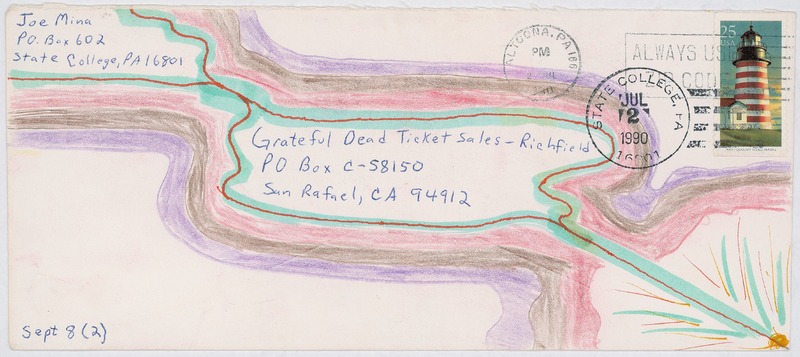 Joe Mina
P.O. Box 602
State College, PA 16801
ALTOONA, PA 166
PM
1990
ALWAYS US
ZIP CODE
STATE COLLEGE, PA
JUL
2
1990
16801
25
USA
Grateful Dead Ticket Sales - Richfield
PO Box C-58150
San Rafael, CA 94912
Sept 8 (2)